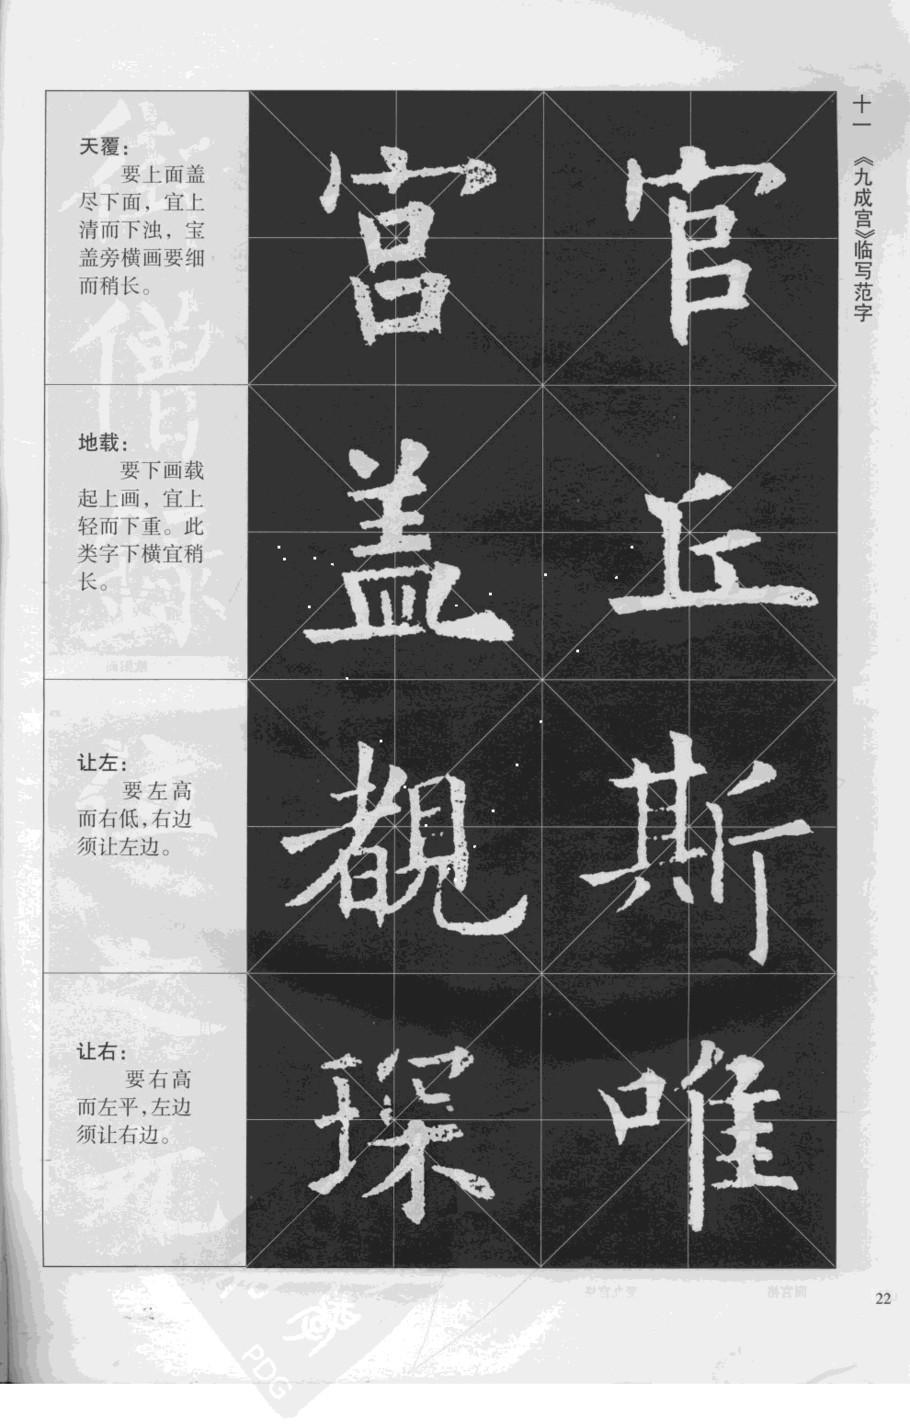 十一 《九成宫》临写范字
天覆：
要上面盖
尽下面，宜上
清而下浊，宝
盖旁横画要细
而稍长。
宫官
地载：
要下画载
起上画，宜上
轻而下重。此
类字下横宜稍
长。
盖丘
让左：
要左高
而右低，右边
须让左边。
覩斯
让右：
要右高
而左平，左边
须让右边。
琛唯
22
PDG